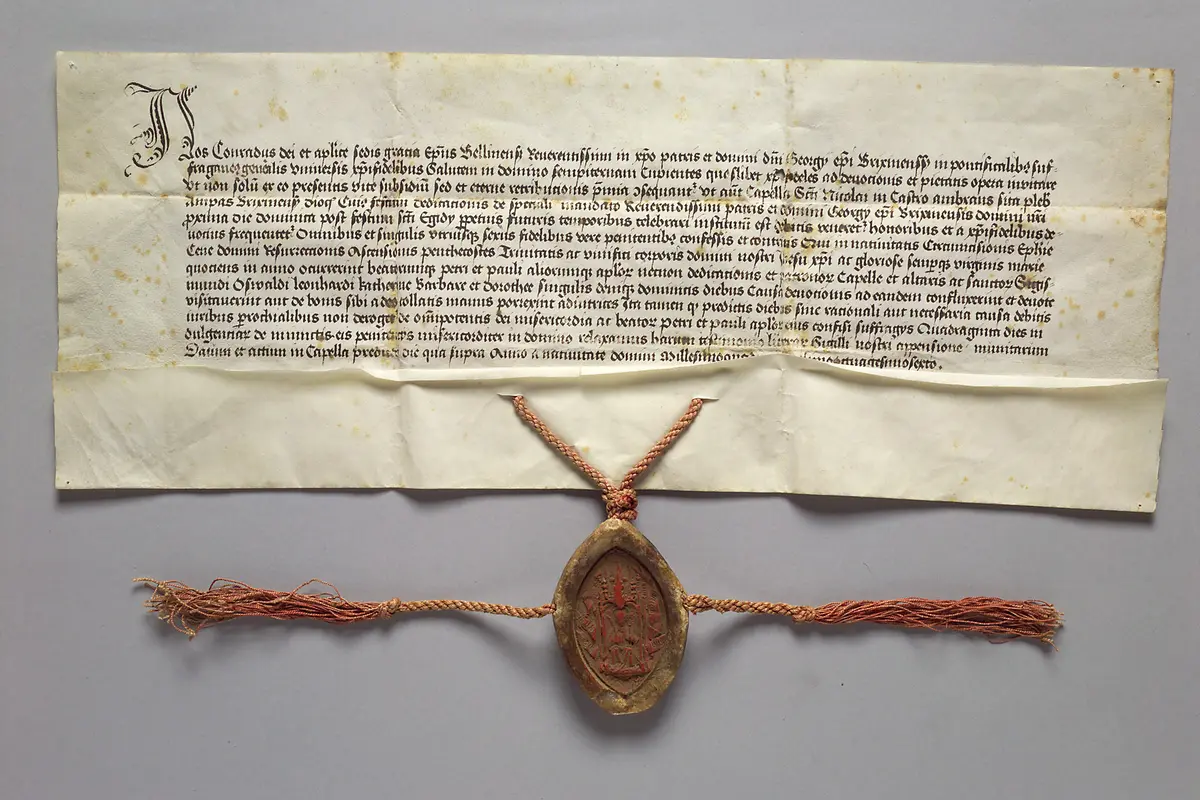 Nos Conradus dei et aplice sedis gratia Epus Bellinensis Reverentissimi in xpo patris et domini dni Georgy epi Brixinensis in pontificalibus suf-
fraganeus generalis Universis xpifidelibus Salutem in domino sempiternam Cupientes queslibet xpifideles ad devotionis et pietatis opera invitare
Ut non solum ex eo presentis vite subsidium sed et eterne retributionis premia consequantur Ut aut Capella Scti Nicolai in Castro ambrans sita pleb
Ampas Brixinensis dioc Cuius festum dedicationis de speciali mandato Reverendissimi patris et domini Georgy epi Brixinensis domini nri
proxima die dominica post festum scti Egidy perpetuis futuris temporibus celebrari institutum est debitis veneretur honoribus et a xpifidelibus de-
votius frequentetur Omnibus et singulis utriusque sexus fidelibus vere penitentibus confessis et contritis Qui in nativitatis Circumcisionis Ephie
Cene domini Resurrectionis Ascensionis penthecostes Trinitatis ac vivifici corporis domini nostri Jesu xpi ac gloriose semperque virginis marie
quotiens in anno occurrerint beatorumque petri et pauli aliorumque aplor necnon dedicationis et patronor Capelle et altaris ac sanctor Sigis-
mundi Oswaldi leonhardi katherine Barbare et dorothee singulis denique dominicis diebus Causa devotionis ad eandem confluxerint et devote
visitaverint aut de bonis sibi a deo collatis manus porrexerint adiutrices Ita tamen quod predictis diebus sine rationali aut necessaria causa debitis
iuribus prochialibus non deroget de omnipotentis dei misericordia ac beator petri et pauli aplor eius confisi suffragys Quadraginta dies in-
dulgentiar de iniunctis eis penitentys misericorditer in domino relaxamus harum testimonio literar Sigilli nostri appensione munitarum
Datum et actum in Capella predicta die qua supra Anno a nativitate domini Millesimoquad